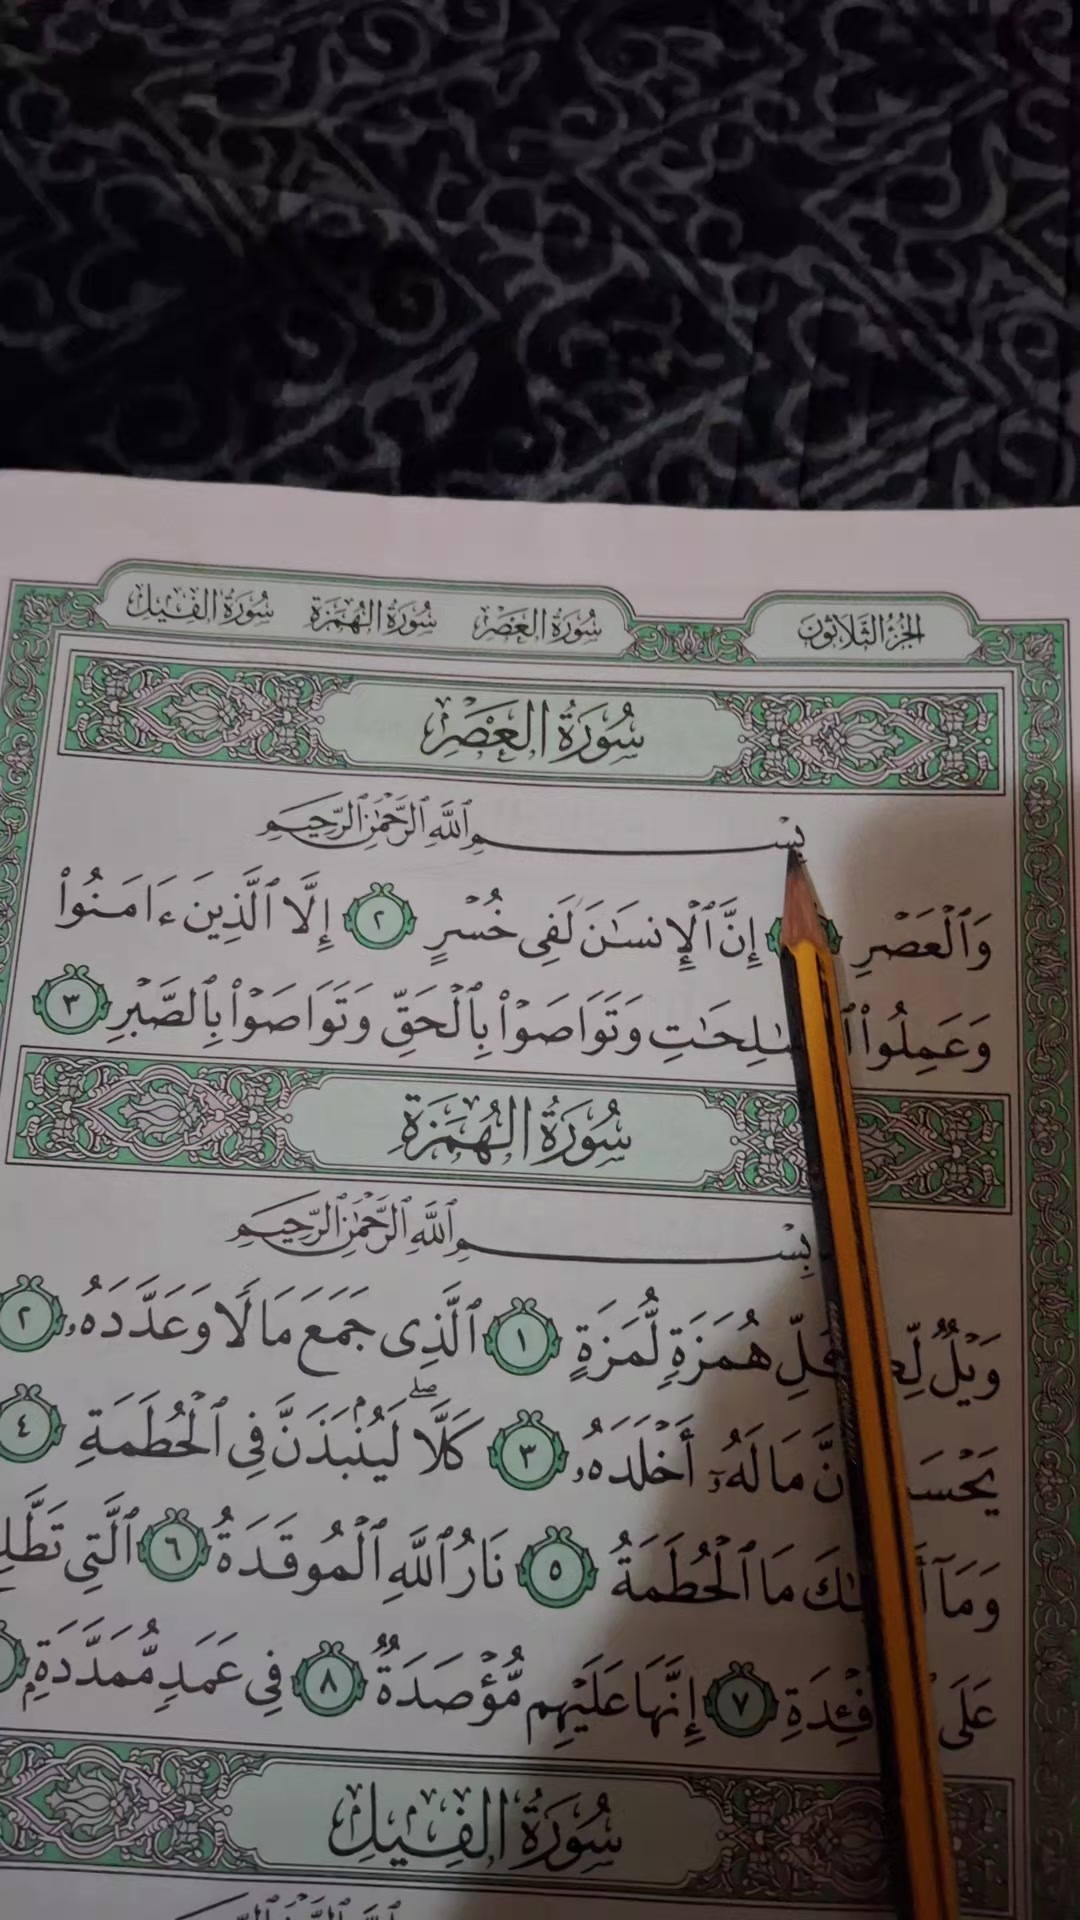 الجزء الثلاثون
سورة العصر سورة الهمزة سورة الفيل
سُورَةُ العَصْرِ
بِسْمِ ٱللَّهِ ٱلرَّحْمَٰنِ ٱلرَّحِيمِ
وَٱلْعَصْرِ إِنَّ ٱلْإِنسَٰنَ لَفِى خُسْرٍ ٢ إِلَّا ٱلَّذِينَ ءَامَنُوا۟
وَعَمِلُوا۟ وَتَوَاصَوْا۟ بِٱلْحَقِّ وَتَوَاصَوْا۟ بِٱلصَّبْرِ ٣
سُورَةُ الهُمَزَةِ
بِسْمِ ٱللَّهِ ٱلرَّحْمَٰنِ ٱلرَّحِيمِ
وَيْلٌ هُمَزَةٍ لُّمَزَةٍ ١ ٱلَّذِى جَمَعَ مَالًا وَعَدَّدَهُۥ ٢
مَالَهُۥٓ أَخْلَدَهُۥ ٣ كَلَّا ۖ لَيُنۢبَذَنَّ فِى ٱلْحُطَمَةِ ٤
وَمَآ مَا ٱلْحُطَمَةُ ٥ نَارُ ٱللَّهِ ٱلْمُوقَدَةُ ٦ ٱلَّتِى
عَلَى إِنَّهَا عَلَيْهِم مُّؤْصَدَةٌ ٨ فِى عَمَدٍ مُّمَدَّدَةٍۭ
سُورَةُ الفِيلِ